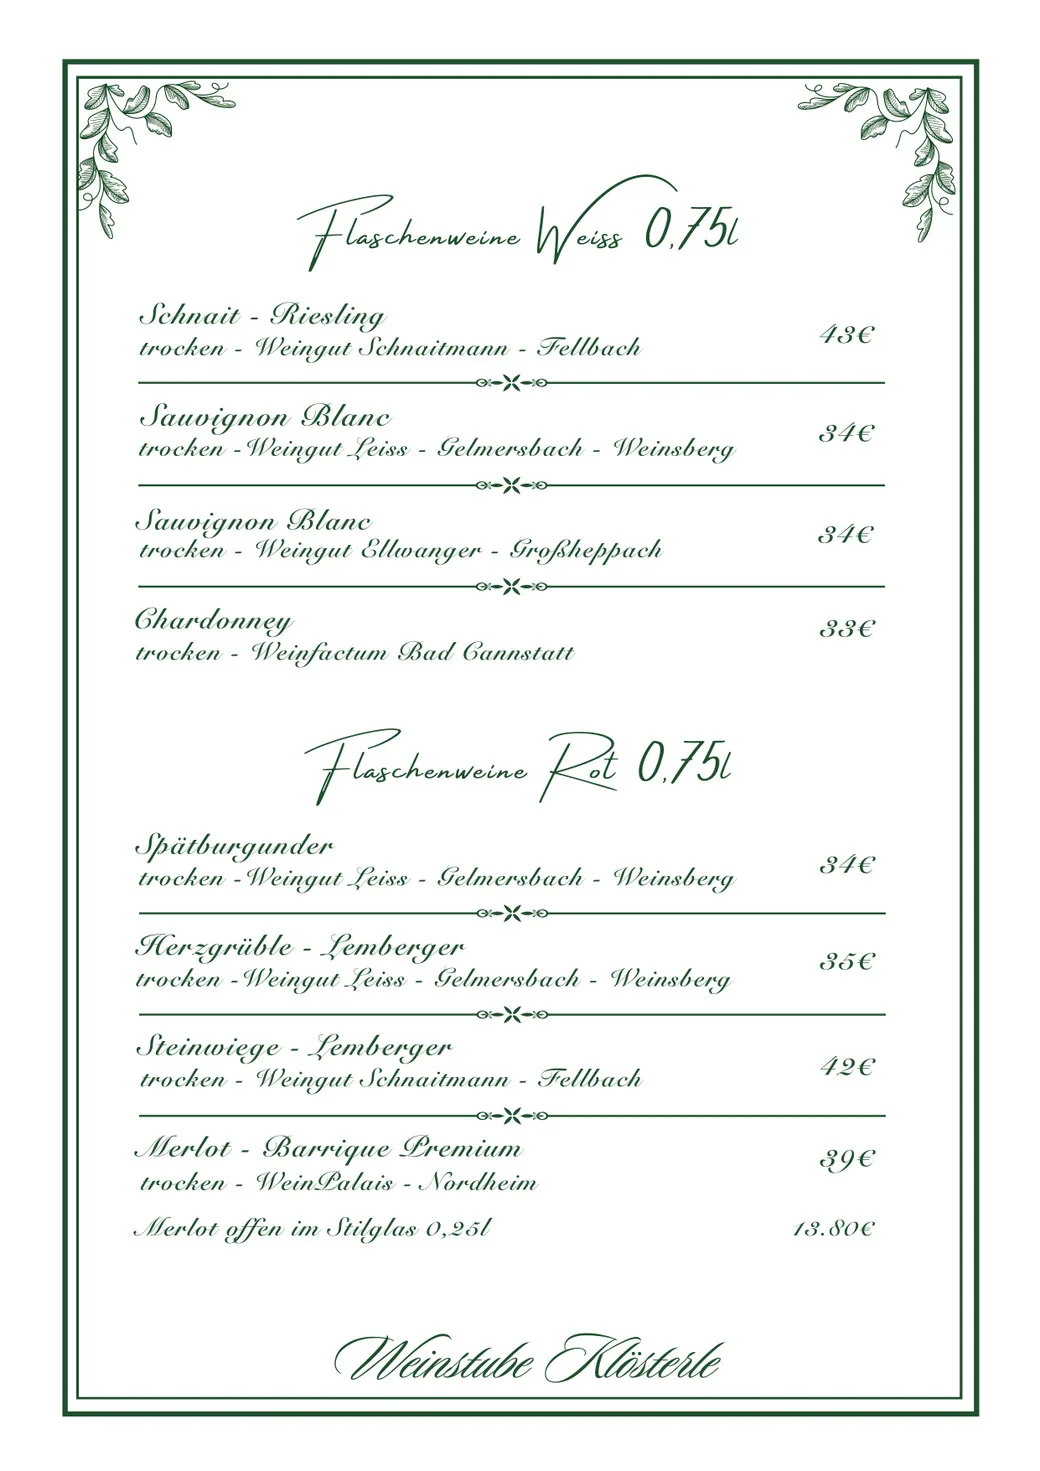 Flaschenweine Weiss 0,75l
Schnait - Riesling
trocken - Weingut Schnaitmann - Fellbach
43€
Sauvignon Blanc
trocken -Weingut Leiss - Gelmersbach - Weinsberg
34€
Sauvignon Blanc
trocken - Weingut Ellwanger - Großheppach
34€
Chardonney
trocken - Weinfactum Bad Cannstatt
33€
Flaschenweine Rot 0,75l
Spätburgunder
trocken -Weingut Leiss - Gelmersbach - Weinsberg
34€
Herzgrüble - Lemberger
trocken -Weingut Leiss - Gelmersbach - Weinsberg
35€
Steinwiege - Lemberger
trocken - Weingut Schnaitmann - Fellbach
42€
Merlot - Barrique Premium
trocken - WeinPalais - Nordheim
39€
Merlot offen im Stilglas 0,25l
13.80€
Weinstube Klösterle